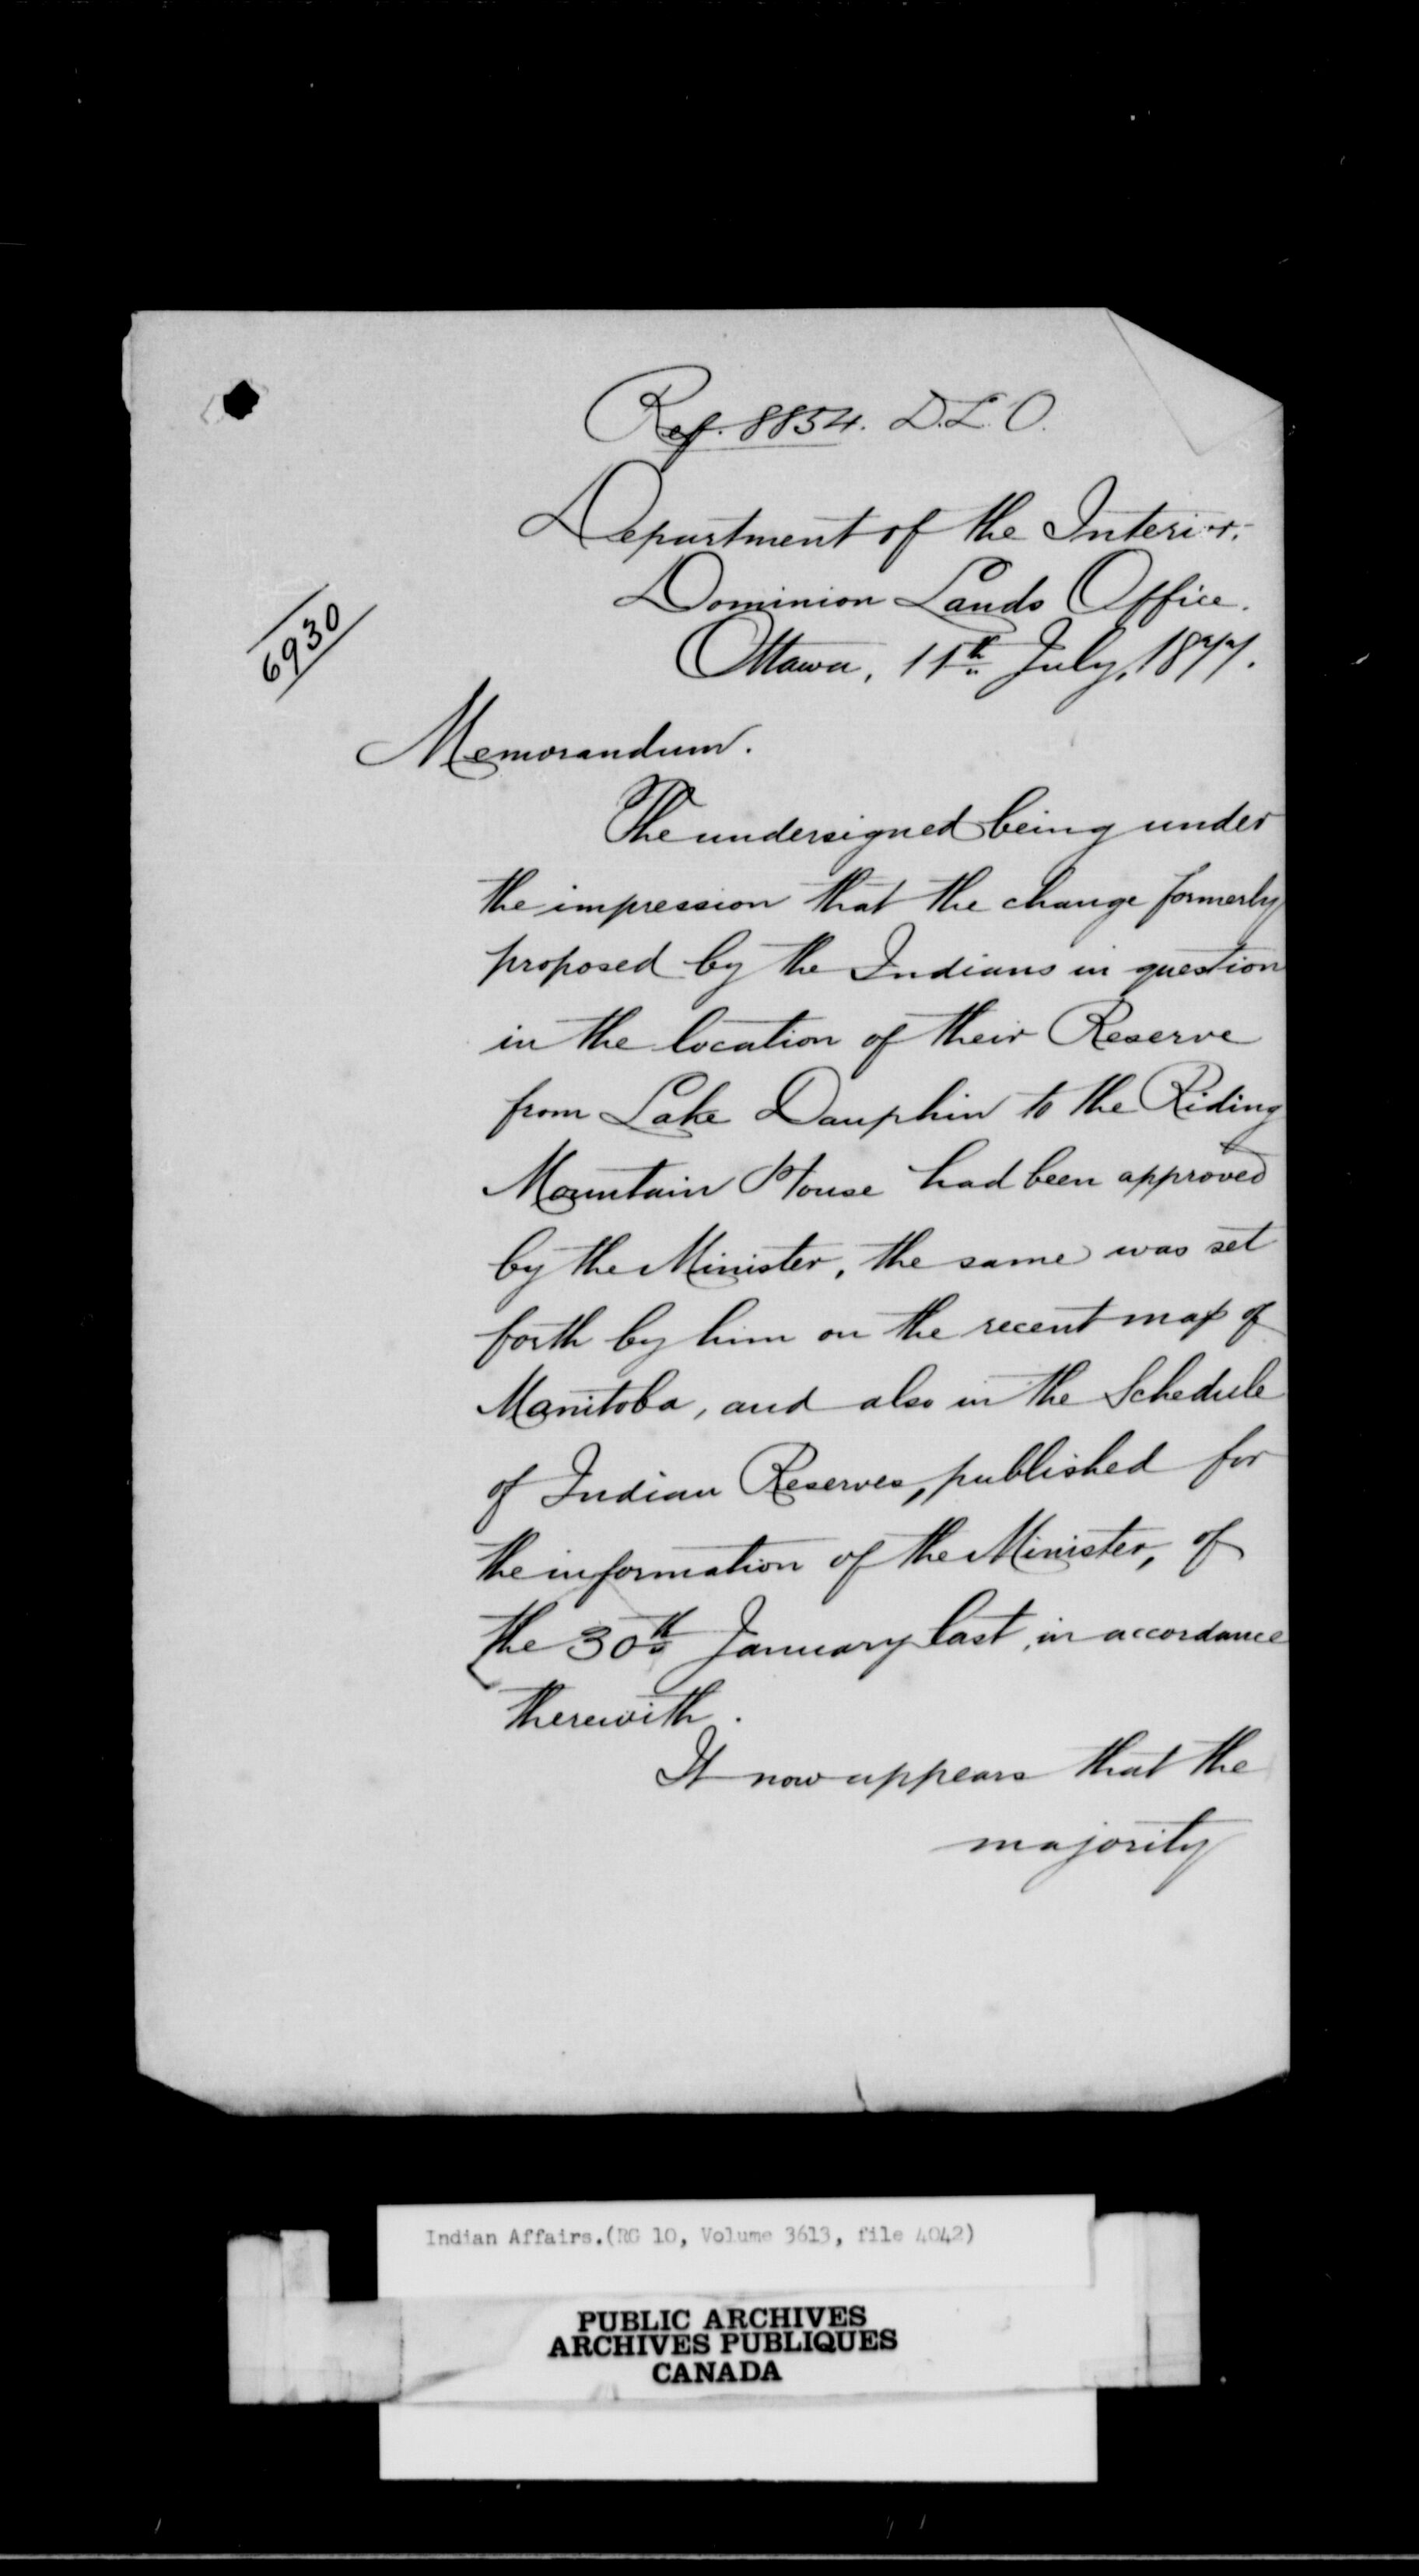 Ref. 8854. D.L.O.
Department of the Interior.
Dominion Lands Office.
Ottawa, 11th July, 1877.
6930
Memorandum.
The undersigned being under
the impression that the change formerly
proposed by the Indians in question
in the location of their Reserve
from Lake Dauphin to the Riding
Mountain House had been approved
by the Minister, the same was set
forth by him on the recent map of
Manitoba, and also in the Schedule
of Indian Reserves, published for
the information of the Minister, of
the 30th January last, in accordance
therewith.
It now appears that the
majority
Indian Affairs.(RG 10, Volume 3613, file 4042)
PUBLIC ARCHIVES
ARCHIVES PUBLIQUES
CANADA